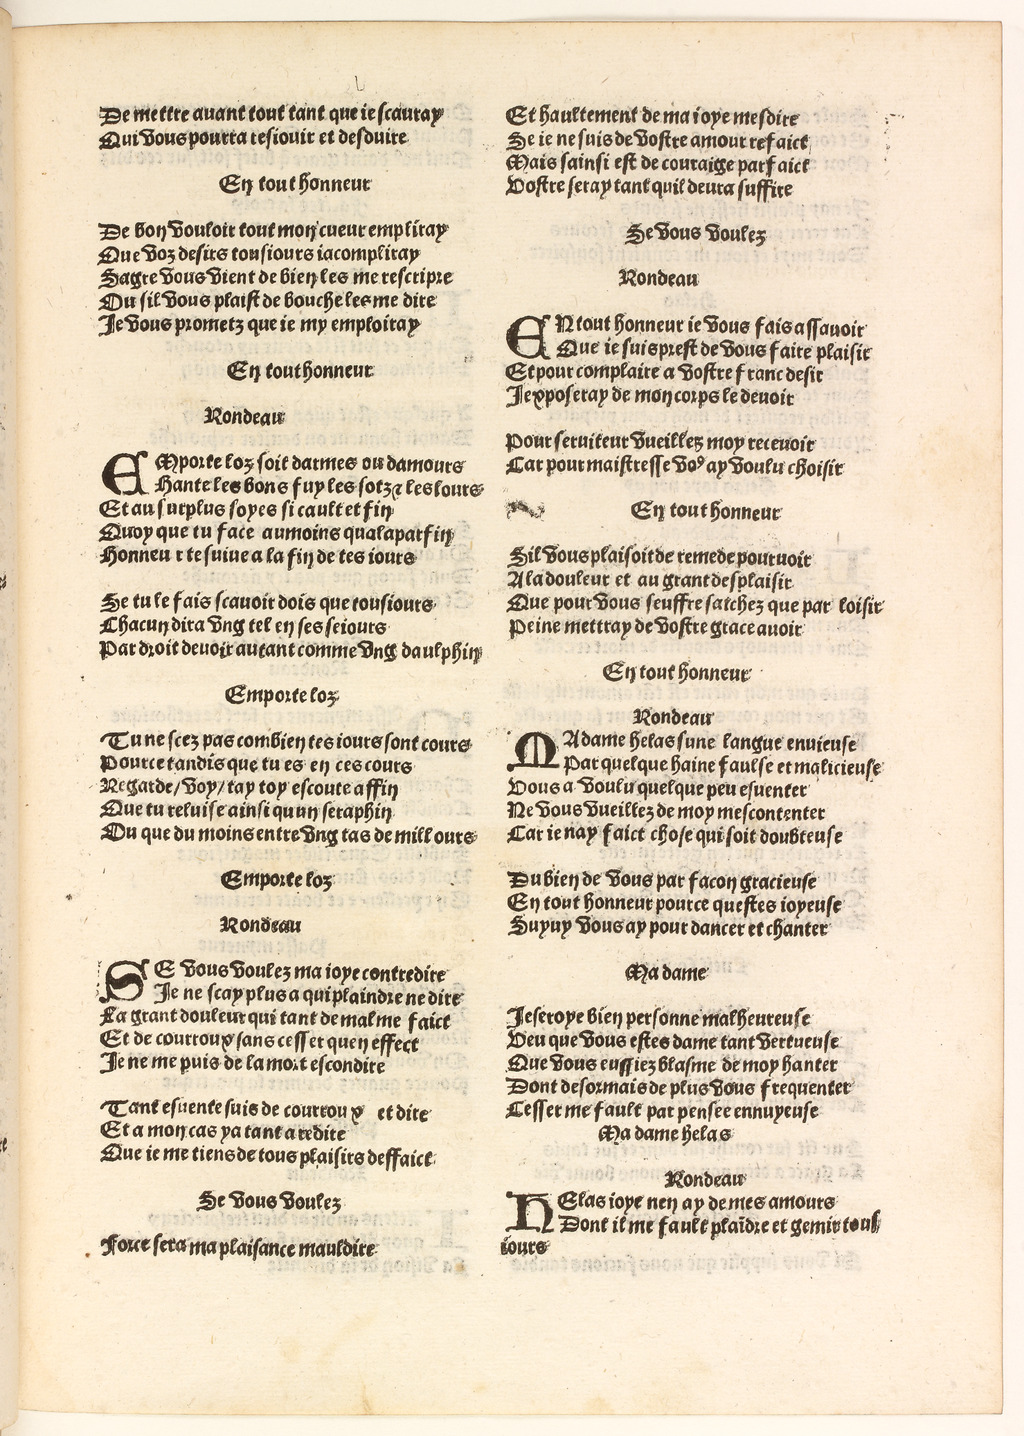 De mettre auant tout tant que ie scauray
Qui vous pourra resiouir et desduire
En tout honneur
De bon vouloir tout mon cueur empliray
Que voz desirs tousiours iacompliray
Sagre vous vient de bien les me rescripre
Ou sil vous plaist de bouche les me dire
Je vous prometz que ie my emploiray
En tout honneur
Rondeau
EMporte loz soit darmes ou damours
Hante les bons fuy les sotz & les lours
Et au surplus soyes si cault et fin
Quoy que tu face aumoins qualaparfin
Honneur te suiue a la fin de tes iours
Se tu le fais scauoir dois que tousiours
Chacun dira vng tel en ses seiours
Par droit deuoir autant comme vng daulphin
Emporte loz
Tu ne scez pas combien tes iours sont cours
Pource tandis que tu es en ces cours
Regarde/voy/tay toy escoute affin
Que tu reluise ainsi quun seraphin
Ou que du moins entre vng tas de millours
Emporte loz
Rondeau
SE vous voulez ma ioye contredire
Je ne scay plus a qui plaindre ne dire
La grant douleur qui tant de mal me faict
Et de courroux sans cesser quen effect
Je ne me puis de la mort escondire
Tant esuente suis de courroux et dire
Et a mon cas ya tant a redire
Que ie me tiens de tous plaisirs deffaict
Se vous voulez
Force sera ma plaisance mauldire
Et haultement de ma ioye mesdire
Se ie ne suis de vostre amour refaict
Mais sainsi est de couraige parfaict
Vostre seray tant quil deura suffire
Se vous voulez
Rondeau
EN tout honneur ie vous fais assauoir
Que ie suis prest de vous faire plaisir
Et pour complaire a vostre franc desir
Jexposeray de mon corps le deuoir
Pour seruiteur vueillez moy receuoir
Car pour maistresse voꝰ ay voulu choisir
En tout honneur
Sil vous plaisoit de remede pouruoir
A la douleur et au grant desplaisir
Que pour vous seuffre saichez que par loisir
Peine mettray de vostre grace auoir
En tout honneur
Rondeau
MAdame helas sune langue enuieuse
Par quelque haine faulse et malicieuse
Vous a voulu quelque peu esuenter
Ne vous vueillez de moy mescontenter
Car ie nay faict chose qui soit doubteuse
Du bien de vous par facon gracieuse
En tout honneur pource questes ioyeuse
Suyuy vous ay pour dancer et chanter
Ma dame
Je seroye bien personne malheureuse
Veu que vous estes dame tant vertueuse
Que vous eussiez blasme de moy hanter
Dont desormais de plus vous frequenter
Cesser me fault par pensee ennuyeuse
Ma dame helas
Rondeau
HElas ioye nen ay de mes amours
Dont il me fault plaīdre et gemir tous
iours